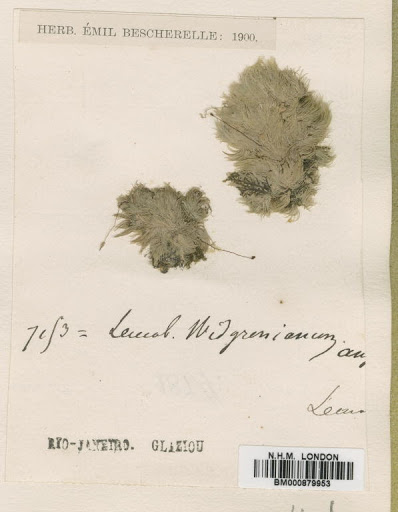 HERB. ÉMIL BESCHERELLE: 1900.
7153 = Leucob. Widgrenianum
RIO-JANEIRO. GLAZIOU
N.H.M. LONDON
BM000879953